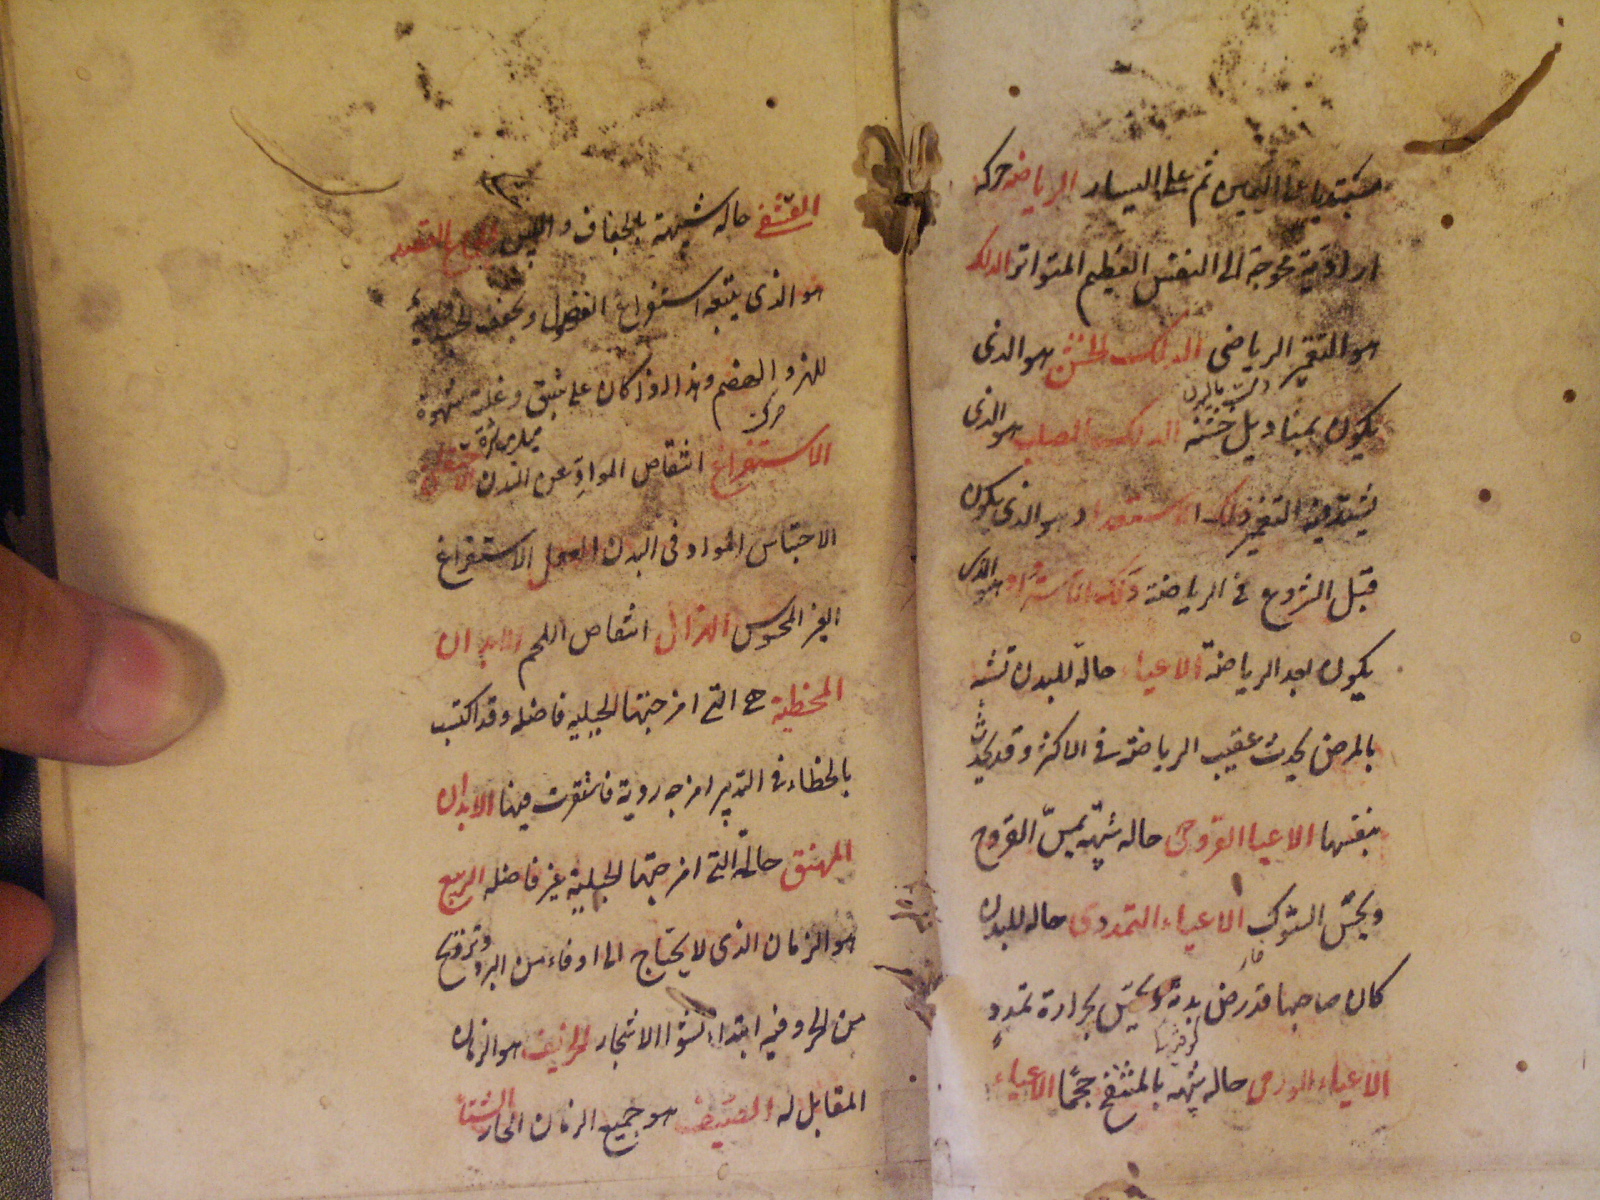 ثم على اليسار الرياضة حركة
ارادية محوجة الى النفس العظيم المتواتر الدلك
هو التغميز الرياضى الدلك الخشن هو الذى
يكون بمناديل خشنة الدلك الصلب هو الذى
يشتد فيه التغميز دلك الاستعداد وهو الذى يكون
قبل الشروع فى الرياضة دلك الاسترداد هو الذى
يكون بعد الرياضة الاعياء حالة للبدن تشبه
بالمرض يحدث عقيب الرياضة فى الاكثر وقد يحدث
بنفسها الاعياء القروحى حاله شبهة بمس القروح
ويحس الشوك الاعياء التمددى حاله للبدن
كان صاحبها قد رض بدنه ويحس بحرارة تمدد
الاعياء الورمى حاله شبهه بالمنتفخ حجمًا الاعياء
القشفى حاله شبيهة بالجفاف واليبس
هو الذى يتبعه استفراغ الفضول ويجفف
الهضم وهذا اذا كان على شبق وغلبة شهوة
حركة
الاستفراغ انتقاص المواد عن البدن
الاحتباس المواد فى البدن الاستفراغ
الغير المحسوس الهزال انتقاص اللحم الابدان
المخطية هى التى امزجتها الجبلية فاضله وقد اكتسب
بالخطاء فى التدبير امزجه ردية فاستقرت فيها الابدان
التى امزجتها الجبلية غير فاضله الربيع
هو الزمان الذى لا يحتاج الى ادفاء من البرد وترويح
من الحر وفيه ابتداء نشؤ الاشجار الخريف هو الزمان
المقابل له الصيف هو جميع الزمان الحار الشتاء